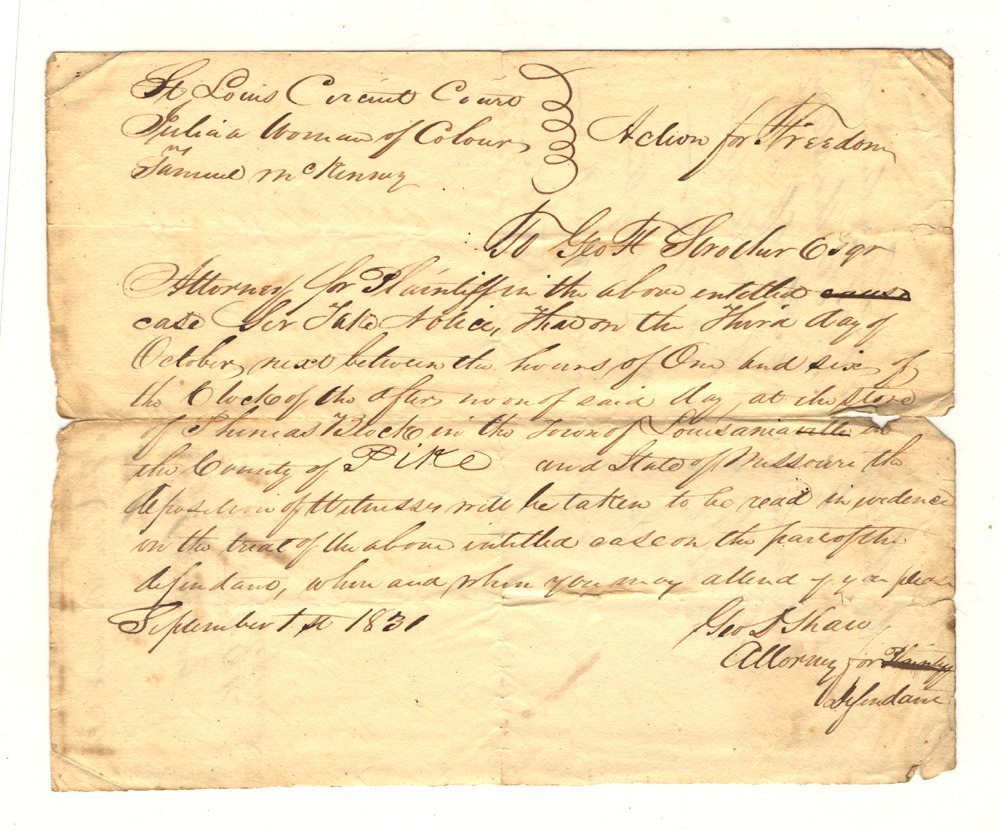 St Louis Circuit Court
Julia a Woman of Colour
vs
Samuel McKenney
Action for Freedom
To Geo H Strother Esqr
Attorney for Plaintiff in the above entitled cause
case Sir Take Notice, That on the Third day of
October next between the hours of One and six of
the Clock of the after noon of said day at the store
of Phineas Block in the Town of Louisianaville in
the County of Pike and State of Missouri the
deposition of Witnesses will be taken to be read in evidence
on the trial of the above intitled case on the part of the
defendant, when and where you may attend if you please
September 1st 1831
Geo S Shaw
Attorney for Plaintiff
Defendant